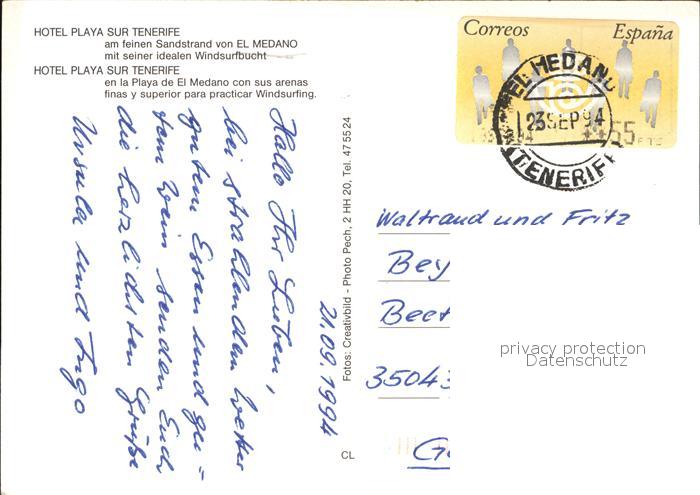 HOTEL PLAYA SUR TENERIFE
am feinen Sandstrand von EL MEDANO
mit seiner idealen Windsurfbucht
HOTEL PLAYA SUR TENERIFE
en la Playa de El Medano con sus arenas
finas y superior para practicar Windsurfing.
Correos España
EL MEDANO
23 SEP 94
TENERIFE
55
21.09.1994
Hallo Ihr Lieben,
bei strahlendem Wetter
gutem Essen und gu=
tem Wein senden Euch
die herzlichsten Grüße
Ursula und Ingo
Fotos: Creativbild - Photo Pech, 2 HH 20, Tel. 47 55 24
CL
Waltraud und Fritz
Bey
Beet
35043
privacy protection
Datenschutz